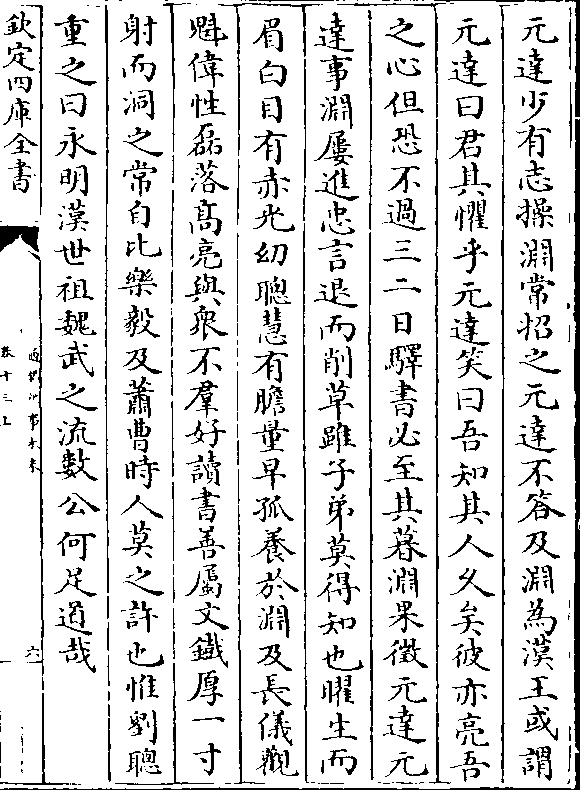 元達少有志操淵常招之元達不答及淵為漢王或謂
元達曰君其懼乎元達笑曰吾知其人久矣彼亦亮吾
之心但恐不過三二日驛書必至其暮淵果徵元達元
達事淵屢進忠言退而削草雖子弟莫得知也曜生而
眉白目有赤光幼聰慧有膽量早孤養於淵及長儀觀
魁偉性磊落高亮與衆不羣好讀書善屬文鐵厚一寸
射而洞之常自比樂毅及蕭曹時人莫之許也惟劉聰
重之曰永明漢世祖魏武之流數公何足道哉
欽定四庫全書
卷十三上
六